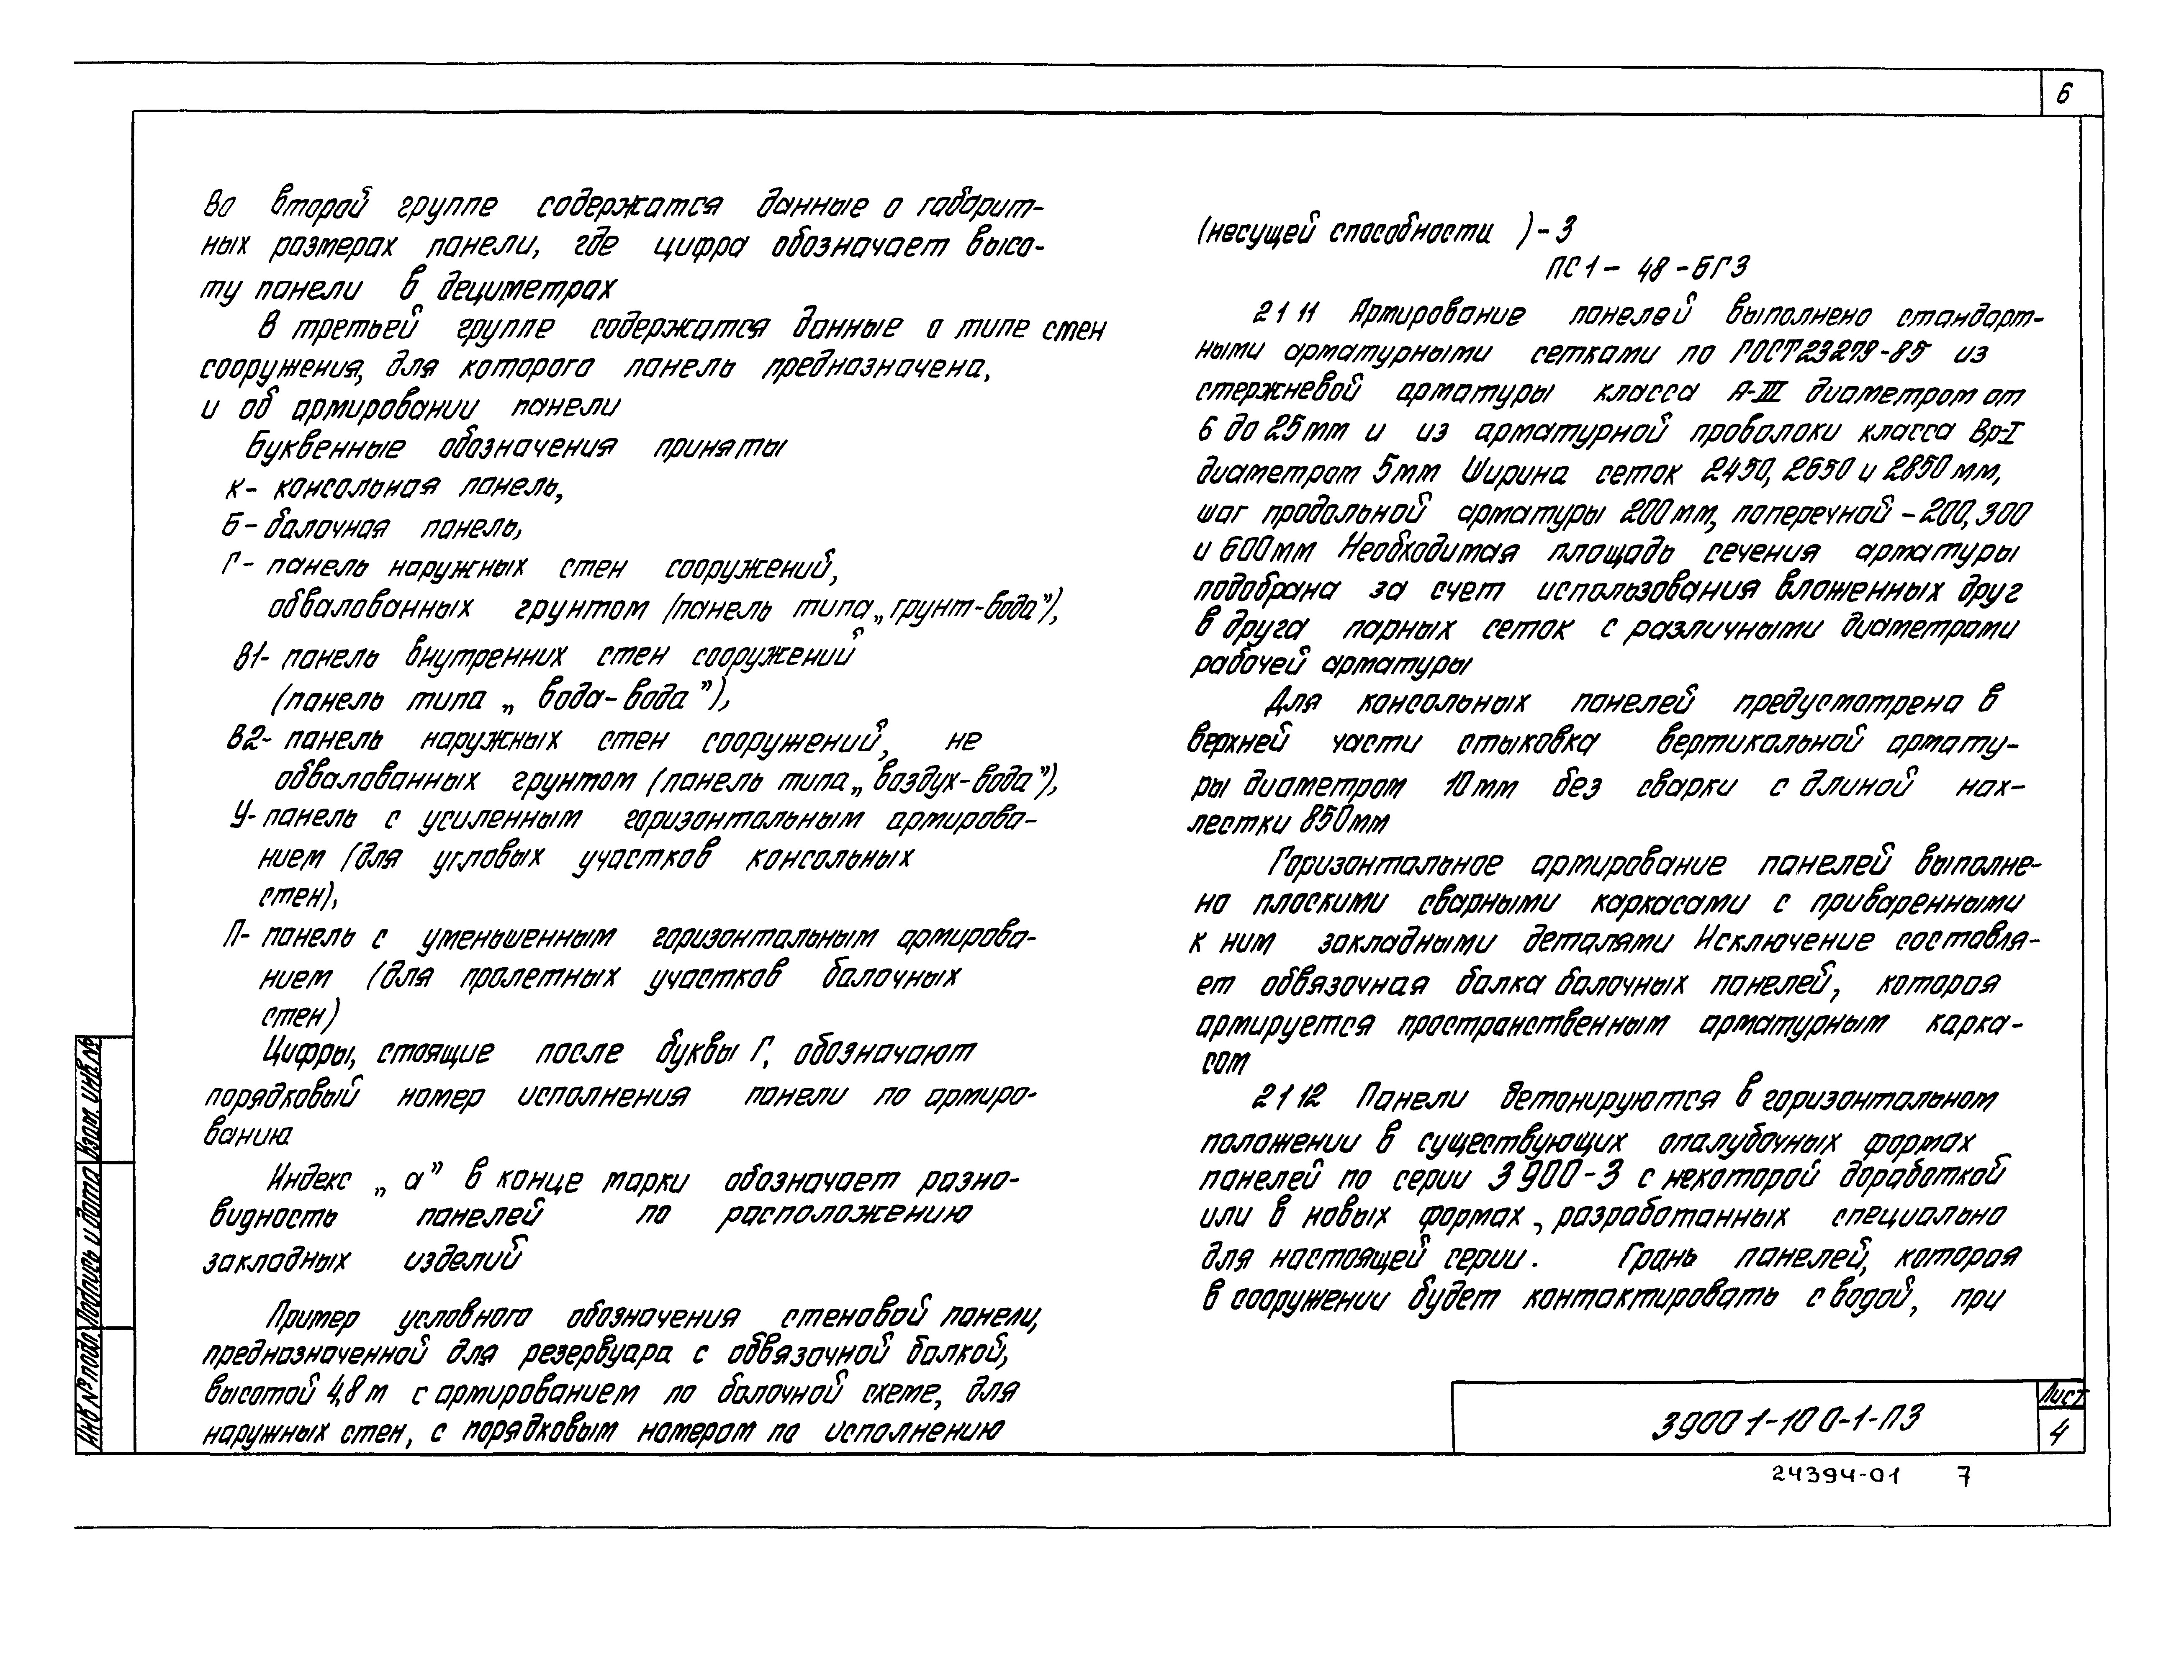 6
Во второй группе содержатся данные о габарит-
ных размерах панели, где цифра обозначает высо-
ту панели в дециметрах
В третьей группе содержатся данные о типе стен
сооружения, для которого панель предназначена,
и об армировании панели
Буквенные обозначения приняты
К- консольная панель,
Б- балочная панель,
Г- панель наружных стен сооружений,
обвалованных грунтом (панель типа „грунт-вода"),
В1- панель внутренних стен сооружений
(панель типа „ вода-вода"),
В2- панель наружных стен сооружений, не
обвалованных грунтом (панель типа „воздух-вода"),
У- панель с усиленным горизонтальным армирова-
нием (для угловых участков консольных
стен),
П- панель с уменьшенным горизонтальным армирова-
нием (для пролетных участков балочных
стен)
Цифры, стоящие после буквы Г, обозначают
порядковый номер исполнения панели по армиро-
ванию
Индекс „ а" в конце марки обозначает разно-
видность панелей по расположению
закладных изделий
Пример условного обозначения стеновой панели,
предназначенной для резервуара с обвязочной балкой,
высотой 4,8 м с армированием по балочной схеме, для
наружных стен, с порядковым номером по исполнению
(несущей способности ) - 3
ПС1- 48 -БГ3
2 1 11 Армирование панелей выполнено стандарт-
ными арматурными сетками по ГОСТ 23279-85 из
стержневой арматуры класса А-III диаметром от
6 до 25 мм и из арматурной проволоки класса Вр-I
диаметром 5 мм Ширина сеток 2450, 2650 и 2850 мм,
шаг продольной арматуры 200 мм, поперечной - 200, 300
и 600 мм Необходимая площадь сечения арматуры
подобрана за счет использования вложенных друг
в друга парных сеток с различными диаметрами
рабочей арматуры
Для консольных панелей предусмотрена в
верхней части стыковка вертикальной армату-
ры диаметром 10 мм без сварки с длиной нах-
лестки 850 мм
Горизонтальное армирование панелей выполне-
но плоскими сварными каркасами с приваренными
к ним закладными деталями Исключение составля-
ет обвязочная балка балочных панелей, которая
армируется пространственным арматурным карка-
сом
2 1 12 Панели бетонируются в горизонтальном
положении в существующих опалубочных формах
панелей по серии 3 900-3 с некоторой доработкой
или в новых формах, разработанных специально
для настоящей серии. Грань панелей, которая
в сооружении будет контактировать с водой, при
Взам. инв.№
Подпись и дата
Инв № подл.
3 900 1-10 0-1-ПЗ
Лист
4
24394-01 7